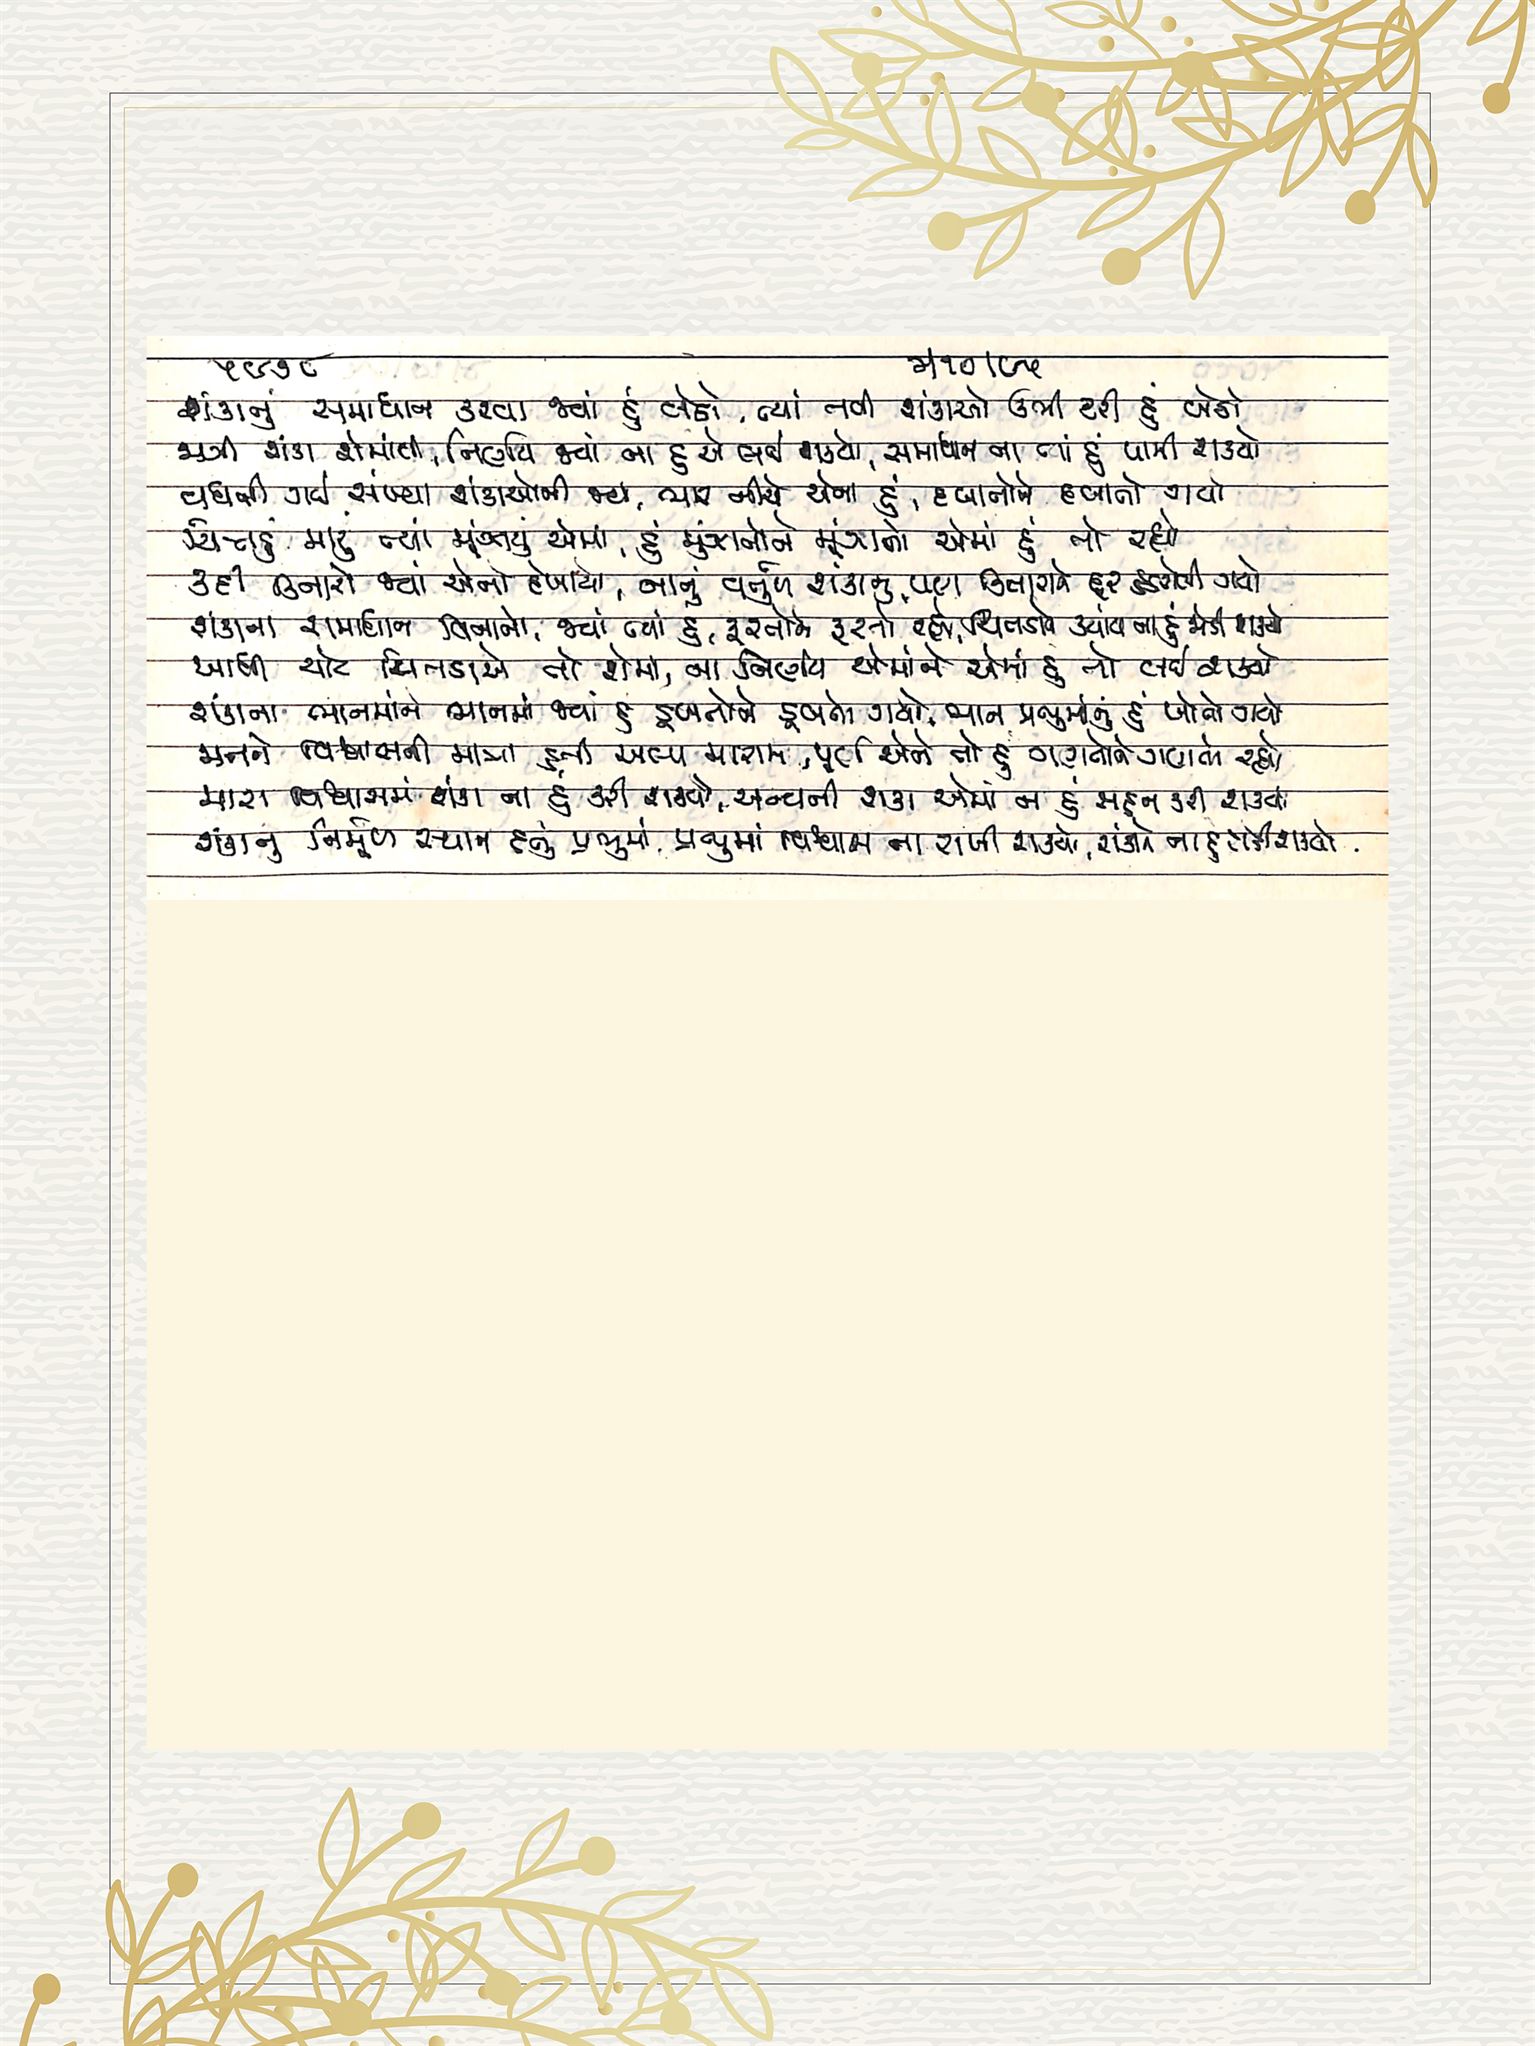 ૫૯૭૯ ૩/૧૦/૮૫
શંકાનું સમાધાન કરવા જ્યાં હું બેઠો, ત્યાં નવી શંકાઓ ઉભી કરી હું બેઠો
મળી શંકા શેમાંથી, નિર્ણય જ્યાં ના હુ એ લઈ શક્યો, સમાધાન ના ત્યાં હું પામી શક્યો
વધતી ગઈ સંખ્યા શંકાઓની જ્યાં, ભાર નીચે એના હું, દબાતોને દબાતો ગયો
ચિત્તડું મારું ત્યાં મૂંઝાયું એમાં, હું મુંઝાતોને મૂંઝાતો એમાં હું તો રહ્યો
કદી કિનારો જ્યાં એનો દેખાયો, બાનું વર્તુળ શંકાનુ, પણ કિનારાને દૂર હડસેલી ગયો
શંકાના સમાધાન વિનાનો, જ્યાં ત્યાં હુ, ફરતોને ફરતો રહ્યો, ચિત્તડાને ક્યાંય ના હું જોડી શક્યો
આવી ચોટ ચિત્તડાએ તો શેમાં, ના નિર્ણય એમાંને એમાં હુ તો લઈ શક્યો
શંકાના ભાનમાંને ભાનમાં જ્યાં હુ ડૂબતોને ડૂબતો ગયો, ભાન પ્રભુમાંનું હું ખોતો ગયો
મનને વિશ્વાસની માત્રા હતી અલ્પ મારામાં, પૂર્ણ એને તો હું ગણતોને ગણતો રહ્યો
મારા વિશ્વાસમાં શંકા ના હું કરી શક્યો, અન્યની શંકા એમાં ન હું સહન કરી શક્યો
શંકાનુ નિર્મૂળ સ્થાન હતું પ્રભુમાં, પ્રભુમાં વિશ્વાસ ના રાખી શક્યો, શંકાને ના હુ તોડી શક્યો.